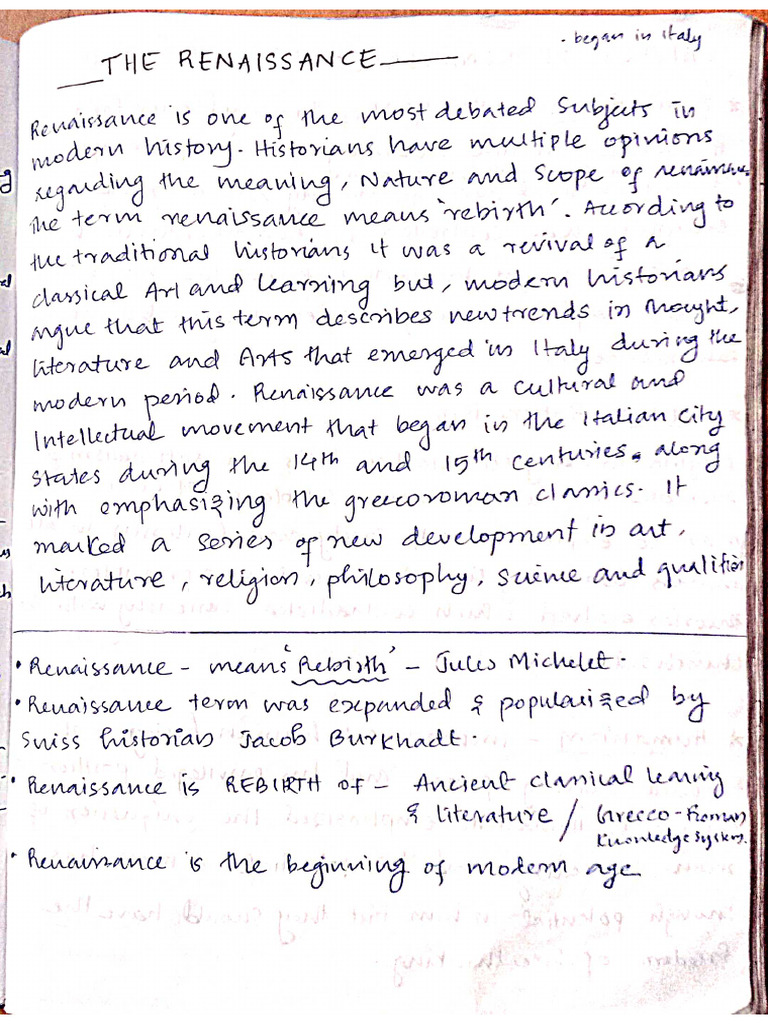 · began in Italy
THE RENAISSANCE
Renaissance is one of the most debated Subjects in
modern history. Historians have multiple opinions
regarding the meaning, Nature and Scope of
the term renaissance means 'rebirth'. According to
the traditional historians it was a revival of a
classical Art and learning but, modern historians
argue that this term describes new trends in thought,
literature and Arts that emerged in Italy during the
modern period. Renaissance was a cultural and
Intellectual movement that began in the Italian City
states during the 14th and 15th centuries. along
with emphasizing the greecoroman classics. It
marked a series of new development in art,
literature, religion, philosophy, science and
• Renaissance - means 'Rebirth' - Jules Michelet.
• Renaissance term was expanded & popularized by
Swiss historian Jacob Burkhadt.
• Renaissance is REBIRTH of - Ancient classical learning
& literature / Grecco-Roman
knowledge system.
• Renaissance is the beginning of modern age